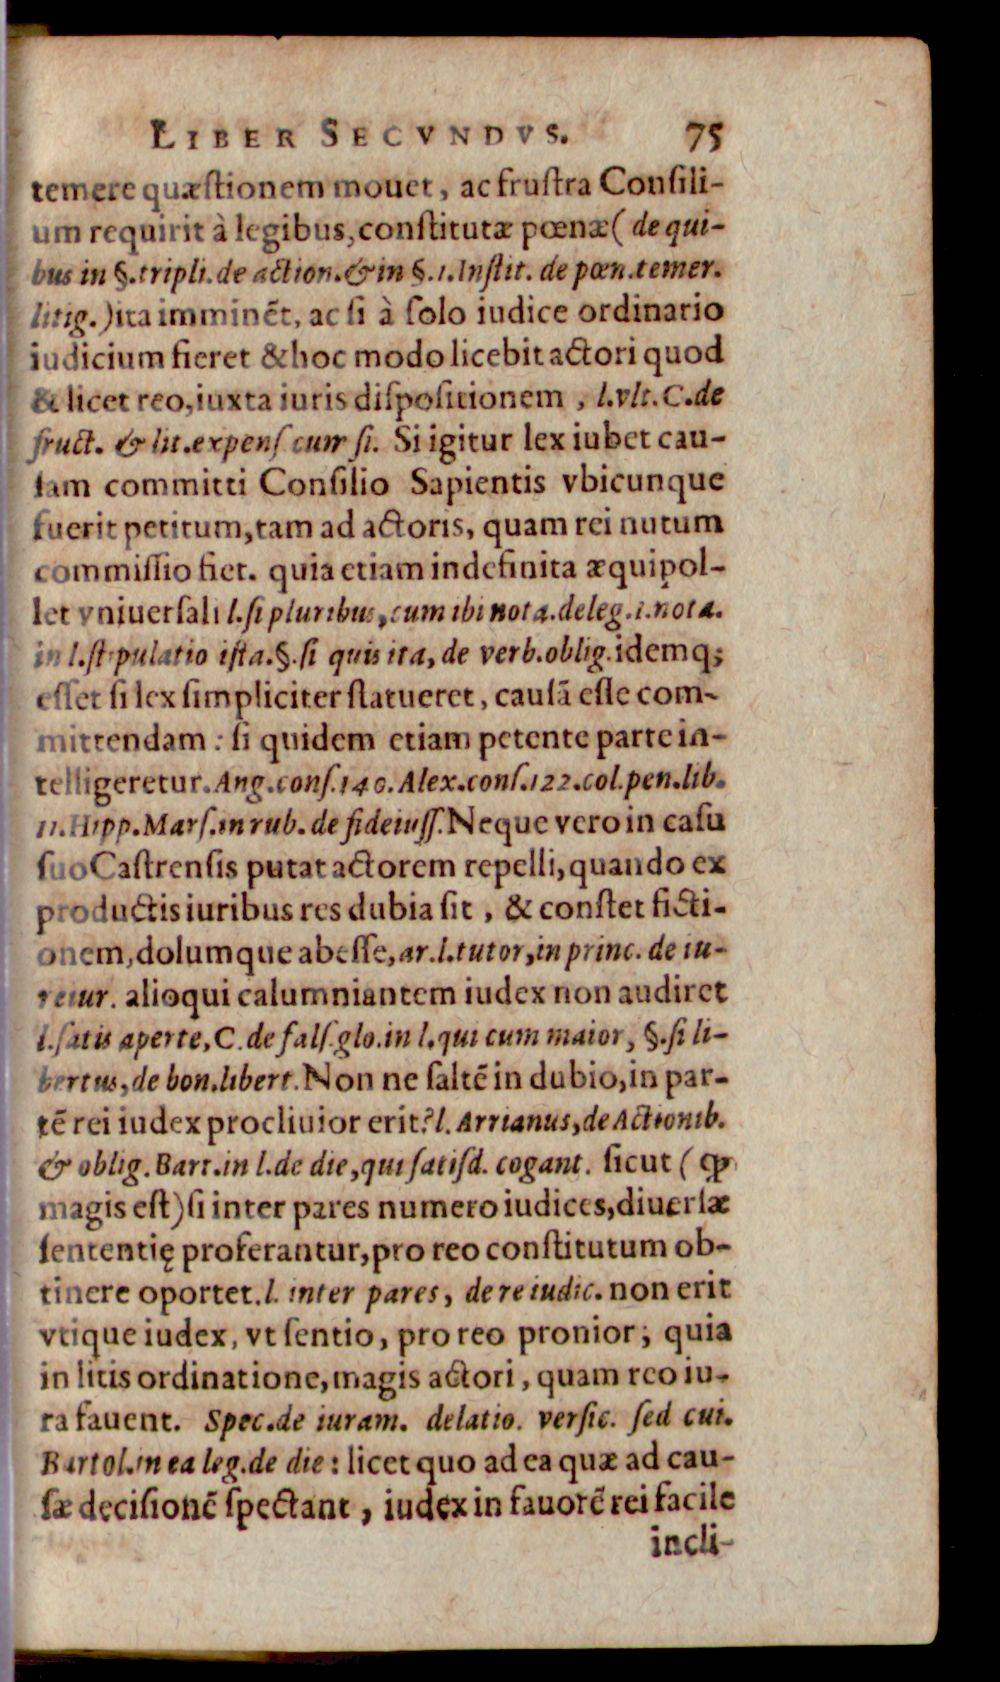 LIBER SECVNDVS. 75
temere quæstionem mouet, ac frustra Consili-
um requirit à legibus, constitutæ pœnæ ( de qui-
bus in §. tripli. de action. & in §. 1. Instit. de pœn. temer.
litig. ) ita imminẽt, ac si à solo iudice ordinario
iudicium fieret & hoc modo licebit actori quod
& licet reo, iuxta iuris dispositionem , l. vlt. C. de
fruct. & lit. expens cum si. Si igitur lex iubet cau-
sam committi Consilio Sapientis vbicunque
fuerit petitum, tam ad actoris, quam rei nutum
commissio fiet. quia etiam indefinita æquipol-
let vniuersali l. si pluribus, cum ibi nota. de leg. 1. nota.
in l. stipulatio ista. §. si quis ita, de verb. oblig. idemq;
esset si lex simpliciter statueret, causã esse com-
mittendam : si quidem etiam petente parte in-
telligeretur. Ang. cons. 140. Alex. cons. 122. col. pen. lib.
11. Hipp. Mars. in rub. de fideiuss. Neque vero in casu
suo Castrensis putat actorem repelli, quando ex
productis iuribus res dubia sit , & constet ficti-
onem, dolumque abesse, ar. l. tutor, in princ. de iu-
reiur. alioqui calumniantem iudex non audiret
l. satis aperte, C. de fals. glo. in l. qui cum maior, §. si li-
bertus, de bon. libert. Non ne saltẽ in dubio, in par-
tẽ rei iudex procliuior erit? l. Arrianus, de Actionib.
& oblig. Bart. in l. de die, qui satisd. cogant. sicut ( ꝙ
magis est) si inter pares numero iudices, diuersæ
sententię proferantur, pro reo constitutum ob-
tinere oportet. l. inter pares, de re iudic. non erit
vtique iudex, vt sentio, pro reo pronior; quia
in litis ordinatione, magis actori, quam reo iu-
ra fauent. Spec. de iuram. delatio. versic. sed cui.
Bartol. in ea leg. de die : licet quo ad ea quæ ad cau-
sæ decisionẽ spectant , iudex in fauorẽ rei facile
incli-